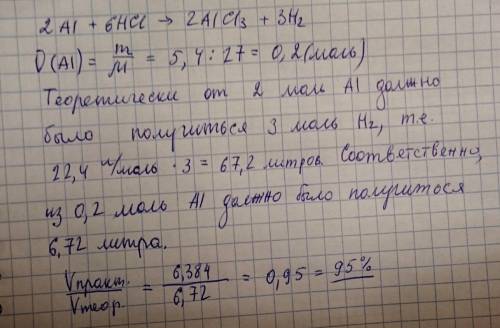 2Al + 6HCl → 2AlCl₃ + 3H₂
υ(Al) = m/M = 5,4 : 27 = 0,2 (моль)
Теоретически от 2 моль Al должно
было получиться 3 моль H₂, т.е.
22,4 л/моль · 3 = 67,2 литров. Соответственно,
из 0,2 моль Al должно было получиться
6,72 литра.
Vпракт./Vтеор. = 6,384/6,72 = 0,95 = 95%